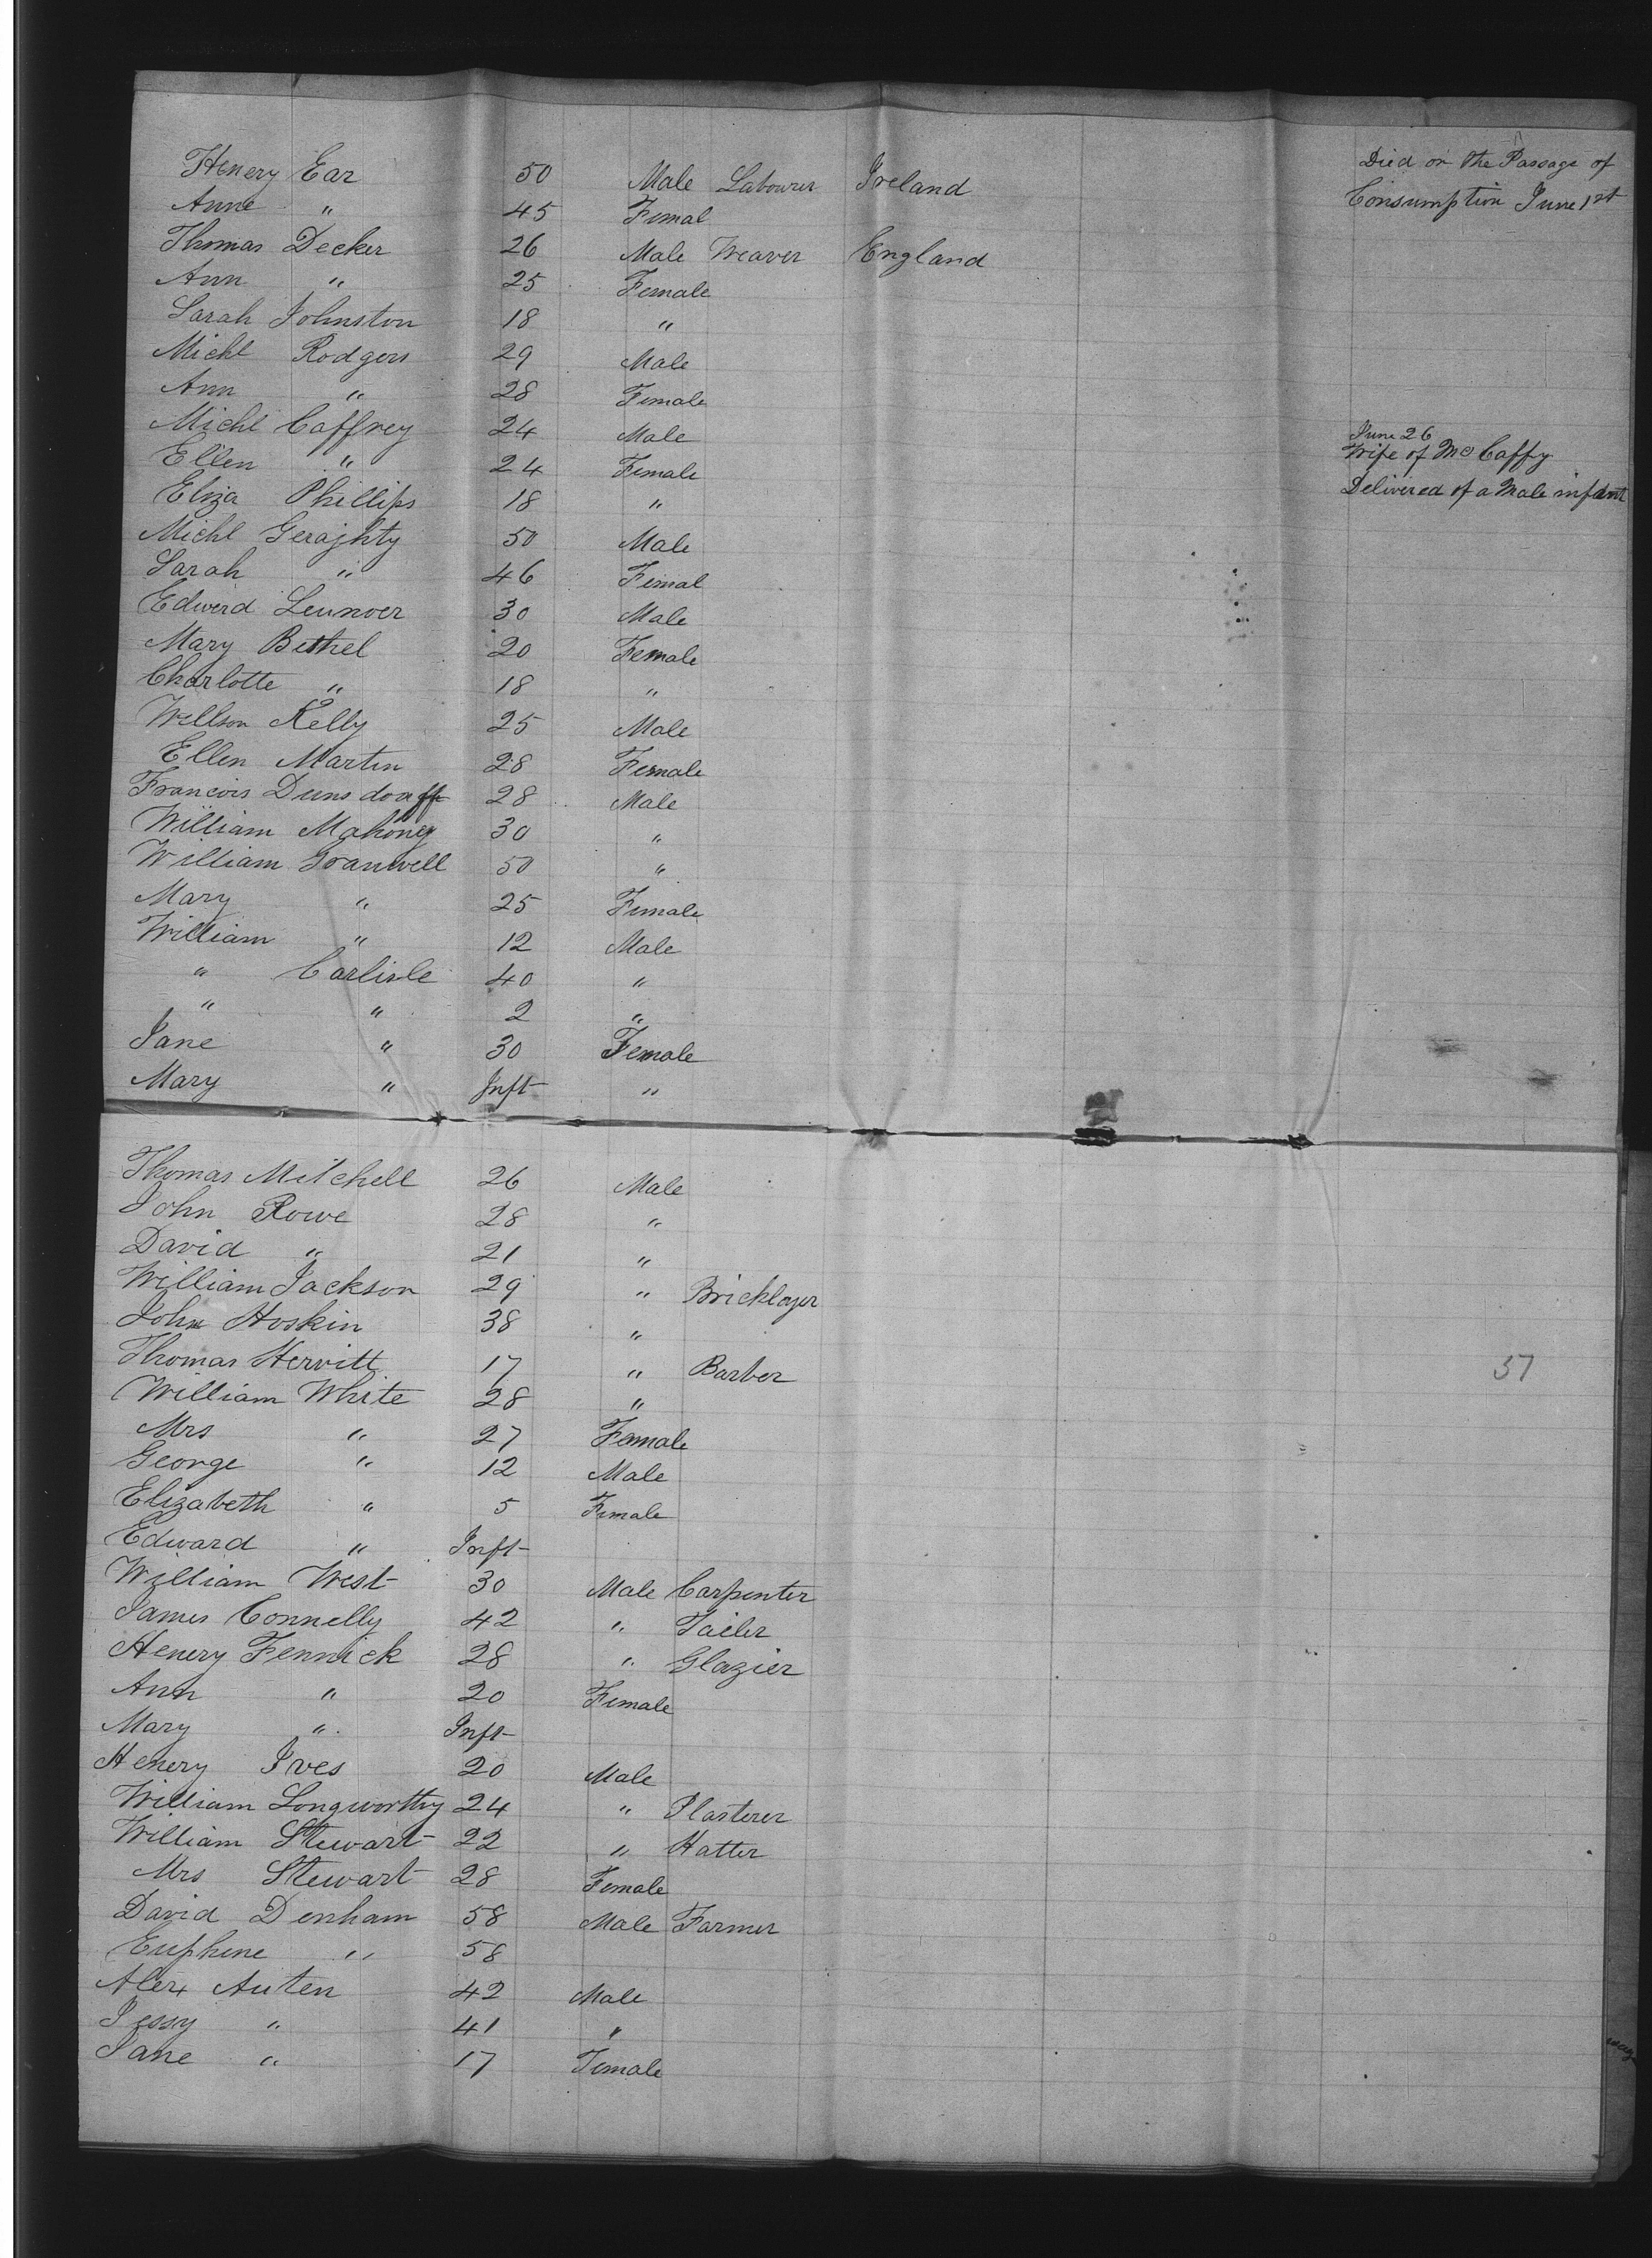 Henery Ear 50 Male Labourer Ireland Died on the Passage of
Consumption June 1st
Anne " 45 Femal
Thomas Decker 26 Male Weaver England
Ann " 25 Female
Sarah Johnston 18 "
Michl Rodgers 29 Male
Ann " 28 Female
Michl Caffrey 24 Male
June 26
Ellen " 24 Female Wife of Mc Caffy
Eliza Phillips 18 " Delivered of a Male infant
Michl Geraghty 50 Male
Sarah " 46 Femal
Edwerd 30 Male
Mary Bethel 20 Female
Charlotte " 18 "
Willson Kelly 25 Male
Ellen Martin 28 Female
Francois 28 Male
William Mahoney 30 "
William Tranwell 50 "
Mary " 25 Female
William " 12 Male
" Carlisle 40 "
" " 2 "
Jane " 30 Female
Mary " Inft "
Thomas Mitchell 26 Male
John Rowe 28 "
David " 21 "
William Jackson 29 " Bricklayer
John Hoskin 38 "
Thomas Hervitt 17 " Barber
37
William White 28 "
Mrs " 27 Female
George " 12 Male
Elizabeth " 5 Female
Edward " Inft
William West 30 Male Carpenter
James Connelly 42 " Tailer
Henery Fennick 28 " Glazier
Ann " 20 Female
Mary " Inft
Henery Ives 20 Male
William Longworthy 24 " Plasterer
William Stewart 22 " Hatter
Mrs Stewart 28 Female
David Denham 58 Male Farmer
Euphene " 58
Alex Auten 42 Male
Jessy " 41 "
Jane " 17 Female